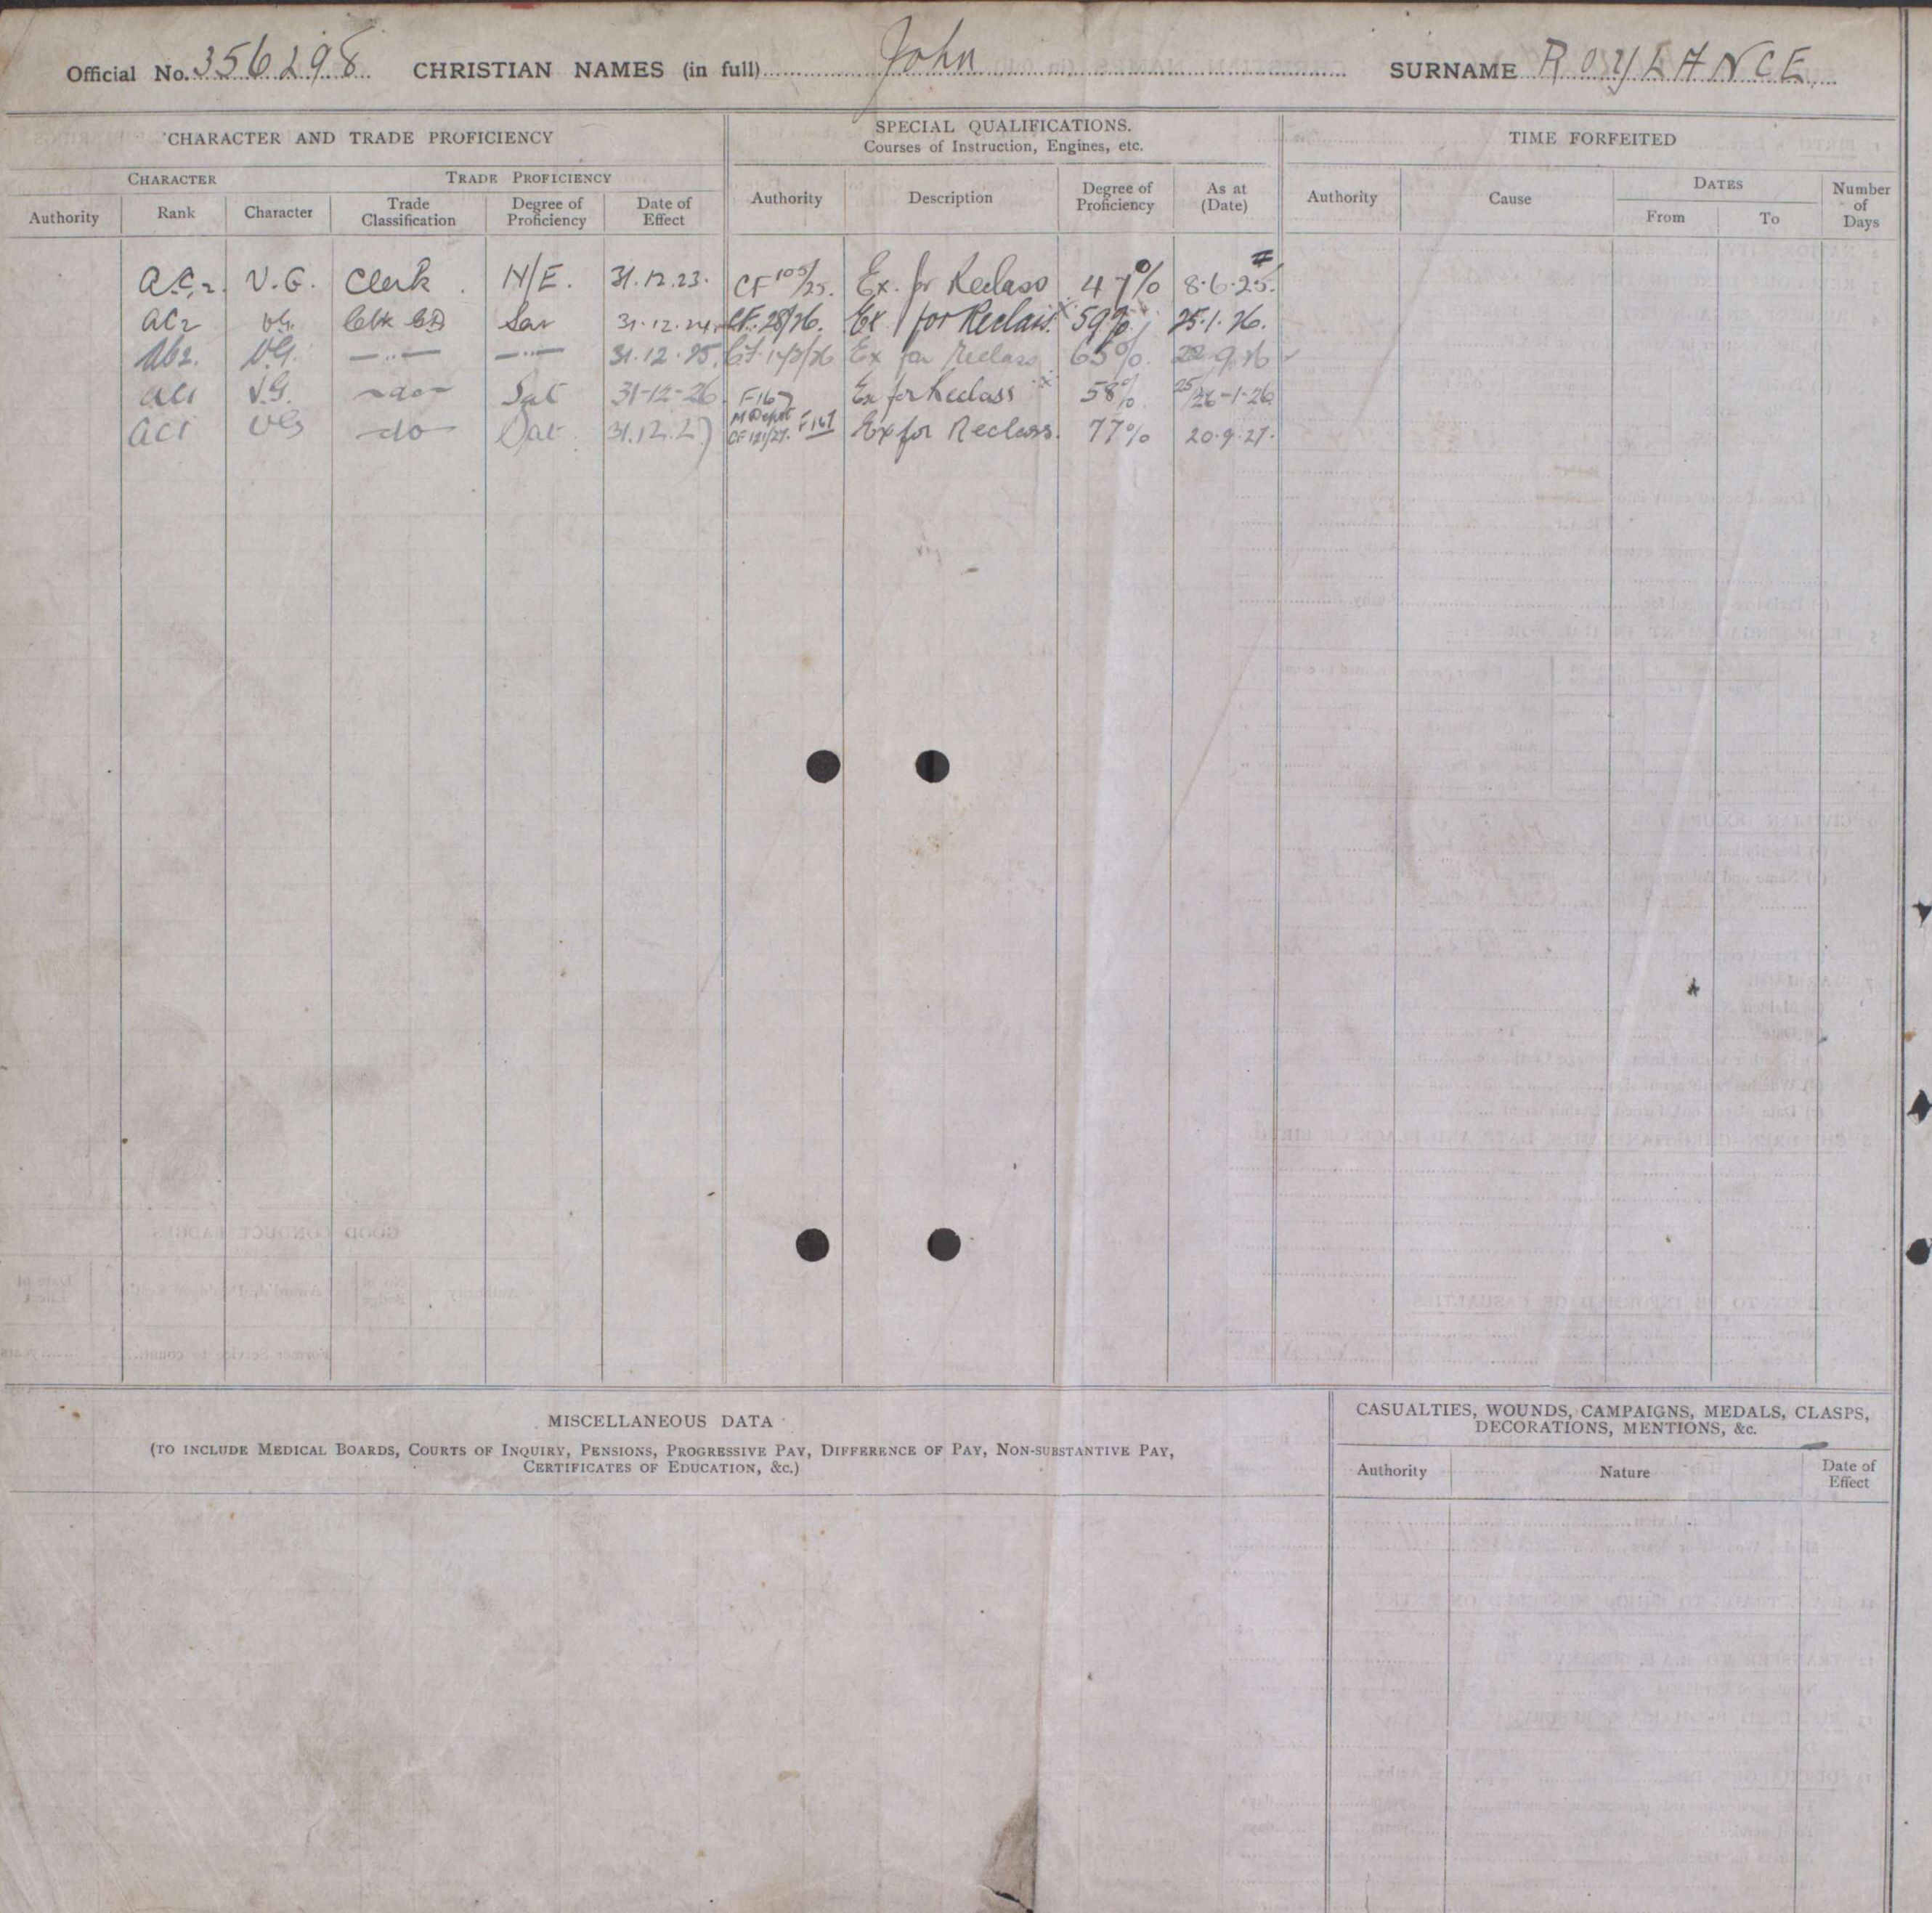 Official No. 356298 CHRISTIAN NAMES (in full) John SURNAME ROYLANCE
CHARACTER AND TRADE PROFICIENCY
SPECIAL QUALIFICATIONS.
Courses of Instruction, Engines, etc.
TIME FORFEITED
CHARACTER
TRADE PROFICIENCY
Authority Rank Character Trade Classification Degree of Proficiency Date of Effect
Authority Description Degree of Proficiency As at (Date)
Authority Cause DATES From To Number of Days
A.C.2. V.G. Clerk. N/E. 31.12.23. CF 105/25. Ex. for Reclass 47% 8.6.25.
AC2 VG. Clk GD Sat 31.12.24. CF. 28/26. Ex for Reclass. 59% 25.1.26.
VG. —"— —"— 31.12.25. Ex for Reclass 65%
AC1 V.G. -do- Sat 31-12-26 F167 Ex for Reclass 58% 25/26-1-26
AC1 VG -do- Sat 31.12.27 M Depot CF 121/27. F167 Ex for Reclass. 77% 20.9.27.
MISCELLANEOUS DATA
(TO INCLUDE MEDICAL BOARDS, COURTS OF INQUIRY, PENSIONS, PROGRESSIVE PAY, DIFFERENCE OF PAY, NON-SUBSTANTIVE PAY,
CERTIFICATES OF EDUCATION, &c.)
CASUALTIES, WOUNDS, CAMPAIGNS, MEDALS, CLASPS,
DECORATIONS, MENTIONS, &c.
Authority Nature Date of Effect